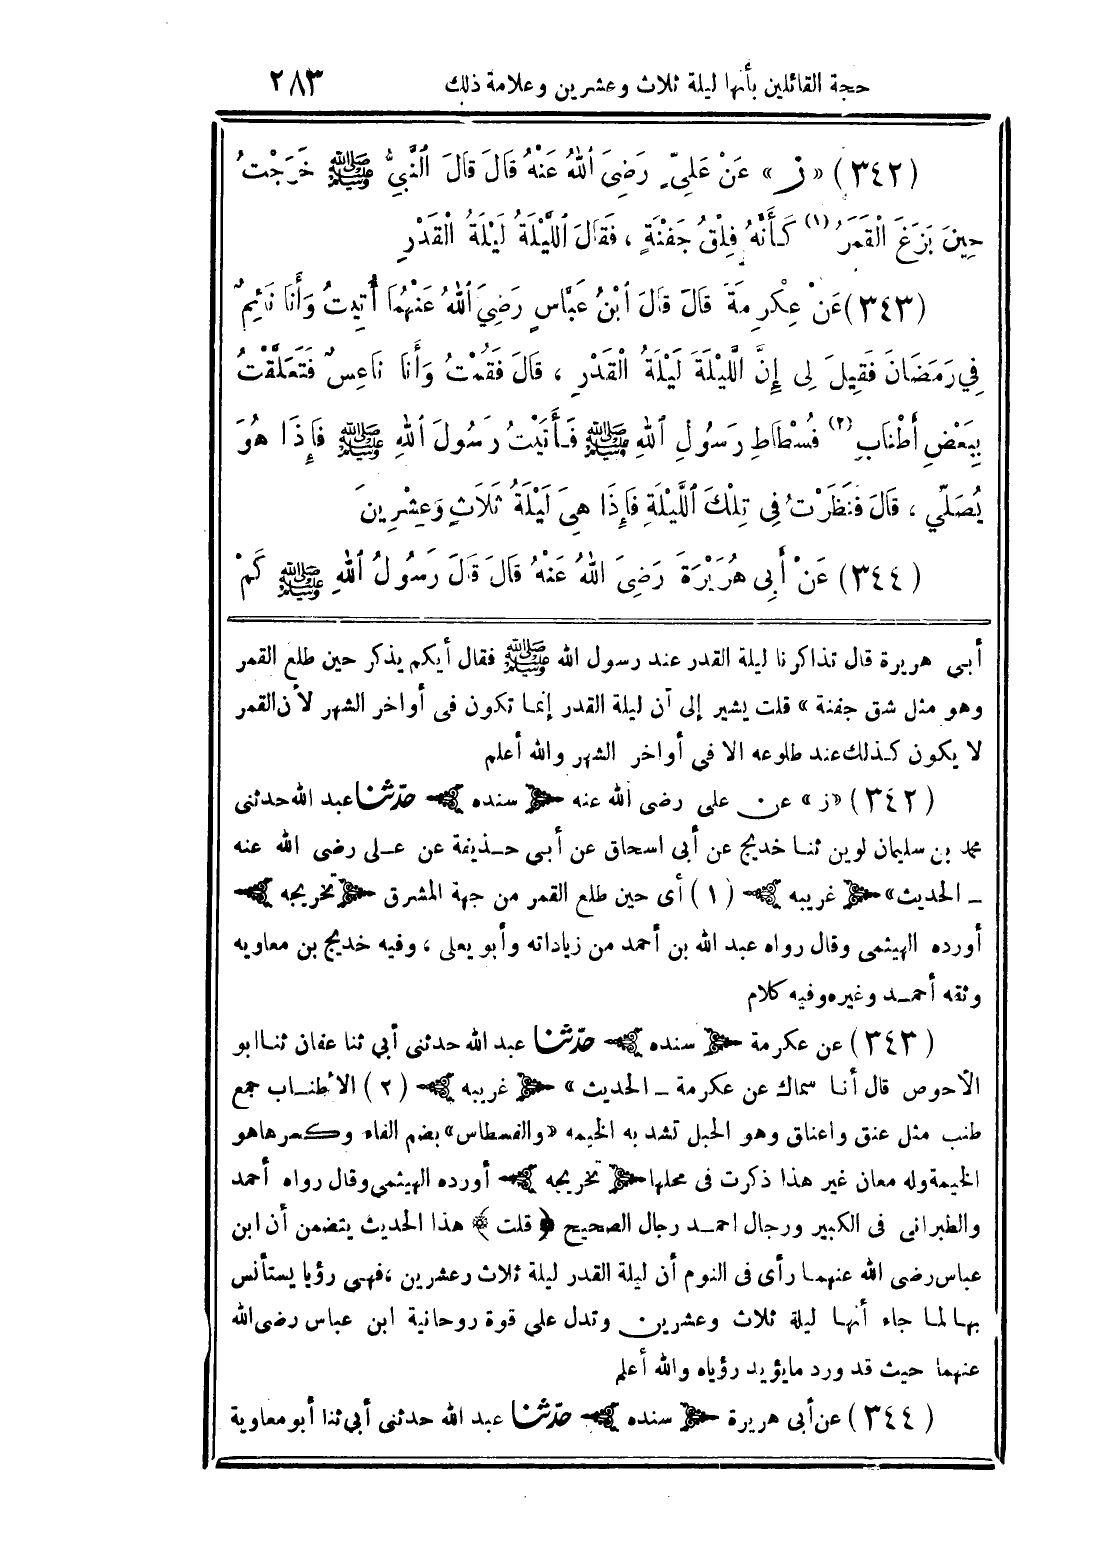 حجة القائلين بأنها ليلة ثلاث وعشرين وعلامة ذلك ٢٨٣
(٣٤٢) «ز» عَنْ عَلِيٍّ رَضِيَ اللهُ عَنْهُ قَالَ قَالَ النَّبِيُّ ﷺ خَرَجْتُ
حِينَ بَزَغَ الْقَمَرُ (١) كَأَنَّهُ فِلْقُ جَفْنَةٍ ، فَقَالَ اللَّيْلَةُ لَيْلَةُ الْقَدْرِ
(٣٤٣) عَنْ عِكْرِمَةَ قَالَ قَالَ ابْنُ عَبَّاسٍ رَضِيَ اللهُ عَنْهُمَا أُتِيتُ وَأَنَا نَائِمٌ
فِي رَمَضَانَ فَقِيلَ لِى إِنَّ اللَّيْلَةَ لَيْلَةُ الْقَدْرِ ، قَالَ فَقُمْتُ وَأَنَا نَاعِسٌ فَتَعَلَّقْتُ
بِبَعْضِ أَطْنَابِ (٢) فُسْطَاطِ رَسُولِ اللهِ ﷺ فَأَتَيْتُ رَسُولَ اللهِ ﷺ فَإِذَا هُوَ
يُصَلِّي ، قَالَ فَنَظَرْتُ فِي تِلْكَ اللَّيْلَةِ فَإِذَا هِيَ لَيْلَةُ ثَلَاثٍ وَعِشْرِينَ
(٣٤٤) عَنْ أَبِى هُرَيْرَةَ رَضِيَ اللهُ عَنْهُ قَالَ قَالَ رَسُولُ اللهِ ﷺ كَمْ
أبي هريرة قال تذاكرنا ليلة القدر عند رسول الله ﷺ فقال أيكم يذكر حين طلع القمر
وهو مثل شق جفنة » قلت يشير إلى أن ليلة القدر إنما تكون فى أواخر الشهر لأن القمر
لا يكون كذلك عند طلوعه الا في أواخر الشهر والله أعلم
(٣٤٢) «ز» عن على رضى الله عنه ﴿ سنده ﴾ حدّثنا عبد الله حدثنى
محمد بن سليمان لوين ثنا خديج عن أبى اسحاق عن أبي حذيفة عن على رضى الله عنه
ـ الحديث» ﴿ غريبه ﴾ (١) أى حين طلع القمر من جهة المشرق ﴿ تخريجه ﴾
أورده الهيثمى وقال رواه عبد الله بن أحمد من زياداته وأبو يعلى ، وفيه خديج بن معاويه
وثقه أحمد وغيره وفيه كلام
(٣٤٣) عن عكرمة ﴿ سنده ﴾ حدّثنا عبد الله حدثنى أبي ثنا عفان ثنا ابو
الأحوص قال أنا سماك عن عكرمة ـ الحديث » ﴿ غريبه ﴾ (٢) الأطناب جمع
طنب مثل عنق واعناق وهو الحبل تشد به الخيمه «والفسطاس» بضم الفاء وكسرها هو
الخيمة وله معان غير هذا ذكرت فى محلها ﴿ تخريجه ﴾ أورده الهيثمى وقال رواه أحمد
والطبرانى فى الكبير ورجال احمد رجال الصحيح ﴿ قلت ﴾ هذا الحديث يتضمن أن ابن
عباس رضى الله عنهما رأى فى النوم أن ليلة القدر ليلة ثلاث رعشرين ، فهي رؤيا يستأنس
بها لما جاء أنها ليلة ثلاث وعشرين وتدل على قوة روحانية ابن عباس رضى الله
عنهما حيث قد ورد مايؤيد رؤياه والله أعلم
(٣٤٤) عن أبى هريرة ﴿ سنده ﴾ حدّثنا عبد الله حدثنى أبي ثنا أبو معاوية